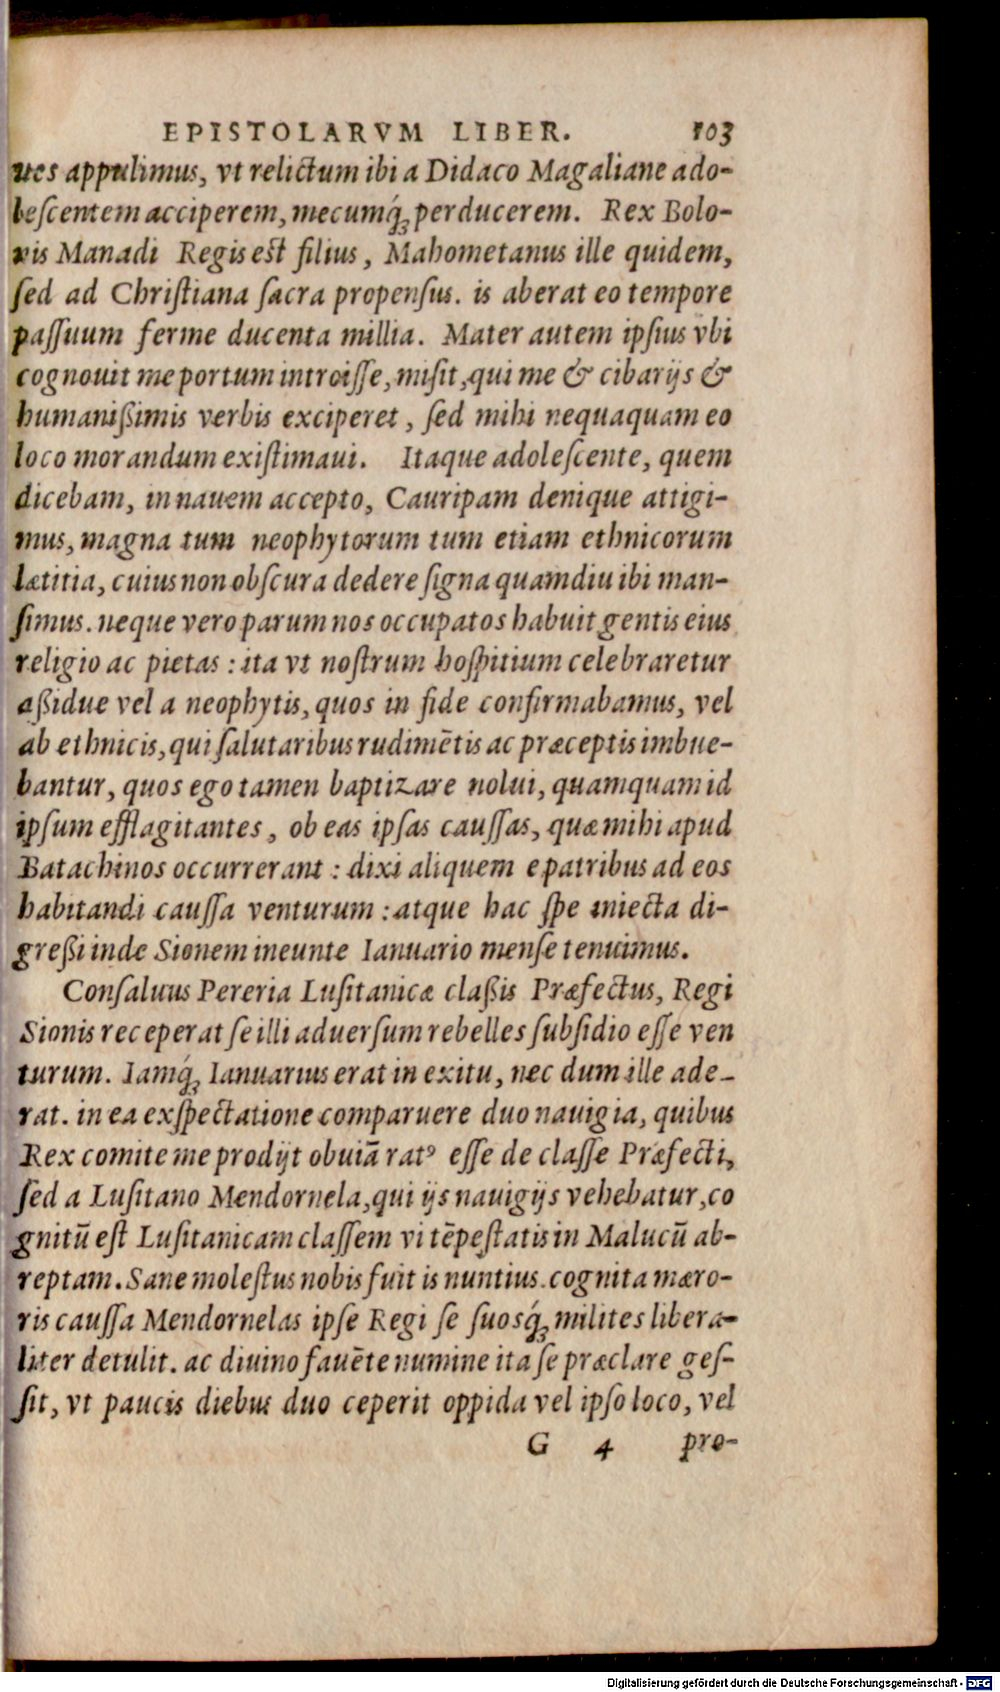 EPISTOLARVM LIBER. 103
ues appulimus, vt relictum ibi a Didaco Magaliane ado-
leſcentem acciperem, mecumq́; perducerem. Rex Bolo-
vis Manadi Regis est filius, Mahometanus ille quidem,
ſed ad Chriſtiana ſacra propenſus. is aberat eo tempore
paſſuum ferme ducenta millia. Mater autem ipſius vbi
cognouit me portum introiſſe, miſit, qui me & cibarijs &
humanißimis verbis exciperet, ſed mihi nequaquam eo
loco morandum exiſtimaui. Itaque adoleſcente, quem
dicebam, in nauem accepto, Cauripam denique attigi-
mus, magna tum neophytorum tum etiam ethnicorum
lætitia, cuius non obſcura dedere ſigna quamdiu ibi man-
ſimus. neque vero parum nos occupatos habuit gentis eius
religio ac pietas : ita vt noſtrum hoſpitium celebraretur
aßidue vel a neophytis, quos in fide confirmabamus, vel
ab ethnicis, qui ſalutaribus rudimētis ac præceptis imbue-
bantur, quos ego tamen baptizare nolui, quamquam id
ipſum efflagitantes, ob eas ipſas cauſſas, quæ mihi apud
Batachinos occurrerant : dixi aliquem e patribus ad eos
habitandi cauſſa venturum : atque hac ſpe iniecta di-
greßi inde Sionem ineunte Ianuario menſe tenuimus.
Conſaluus Pereria Luſitanicæ claßis Præfectus, Regi
Sionis receperat ſe illi aduerſum rebelles ſubſidio eſſe ven
turum. Iamq́; Ianuarius erat in exitu, nec dum ille ade-
rat. in ea exſpectatione comparuere duo nauigia, quibus
Rex comite me prodijt obuiā ratꝰ eſſe de claſſe Præfecti,
ſed a Luſitano Mendornela, qui ijs nauigijs vehebatur, co
gnitū eſt Luſitanicam claſſem vi tēpeſtatis in Malucū ab-
reptam. Sane moleſtus nobis fuit is nuntius. cognita mæro-
ris cauſſa Mendornelas ipſe Regi ſe ſuosq́; milites libera-
liter detulit. ac diuino fauēte numine ita ſe præclare geſ-
ſit, vt paucis diebus duo ceperit oppida vel ipſo loco, vel
G 4 pro-
Digitalisierung gefördert durch die Deutsche Forschungsgemeinschaft - DFG